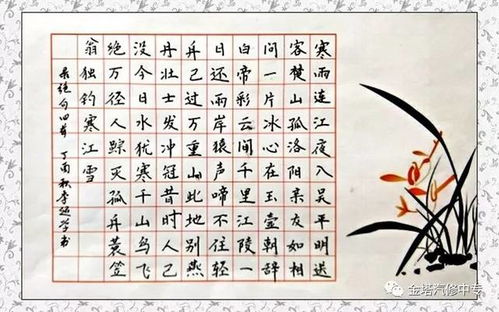 寒雨連江夜入吴平明送
客楚山孤洛阳亲友如相
问一片冰心在玉壶朝辞
白帝彩云间千里江陵一
日还两岸猿声啼不住轻
舟已过万重山此地别燕
丹壮士发冲冠昔时人已
没今日水犹寒千山鸟飞
绝万径人踪灭孤舟蓑笠
翁独钓寒江雪
录绝句四首 丁酉秋李延学书
金塔汽修中专